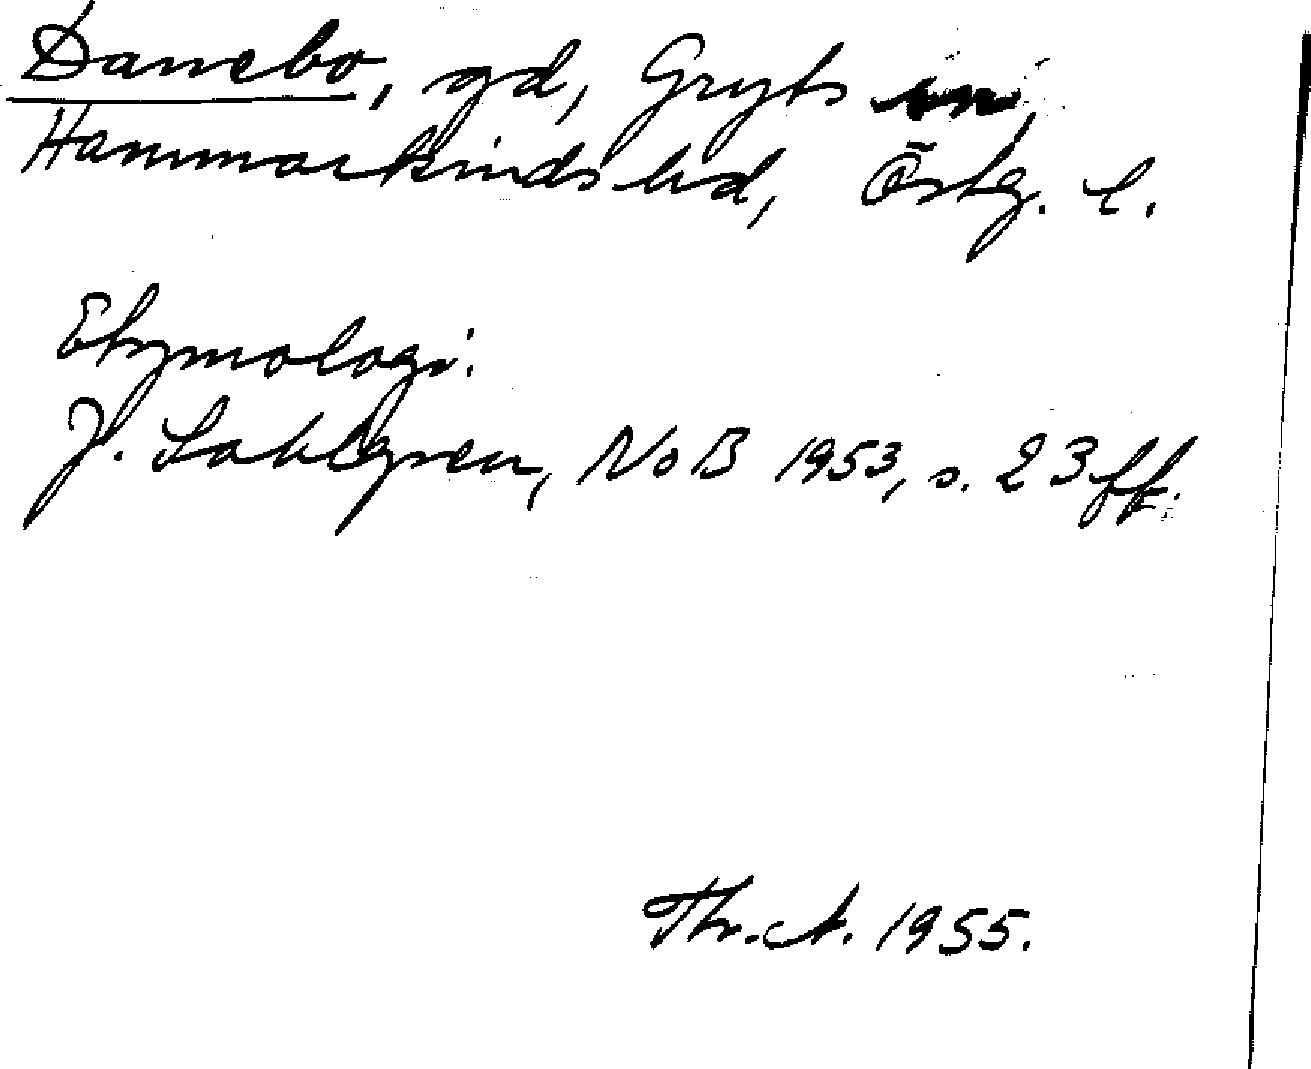 Danebo, gd, Gryts sn,
Hammarkinds hd, Östg. l.
Etymologi.
J. Sahlgren, NoB 1953, s. 23 ff.
Thr. A. 1955.